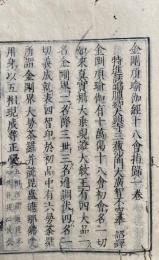 金剛頂瑜伽經十八會指歸一卷
特進試鴻臚卿大興善寺三藏沙門大廣智不空奉 詔譯
金剛頂瑜伽有十萬偈十八會初會名一切
如來真實攝大教王有四大品一
名金剛界二名降三世三名遍調伏四名一
切義成就表四智印於初品中有六曼荼羅
所謂金剛界大曼荼羅并說毘盧遮那佛受
用身以五相現成等正覺